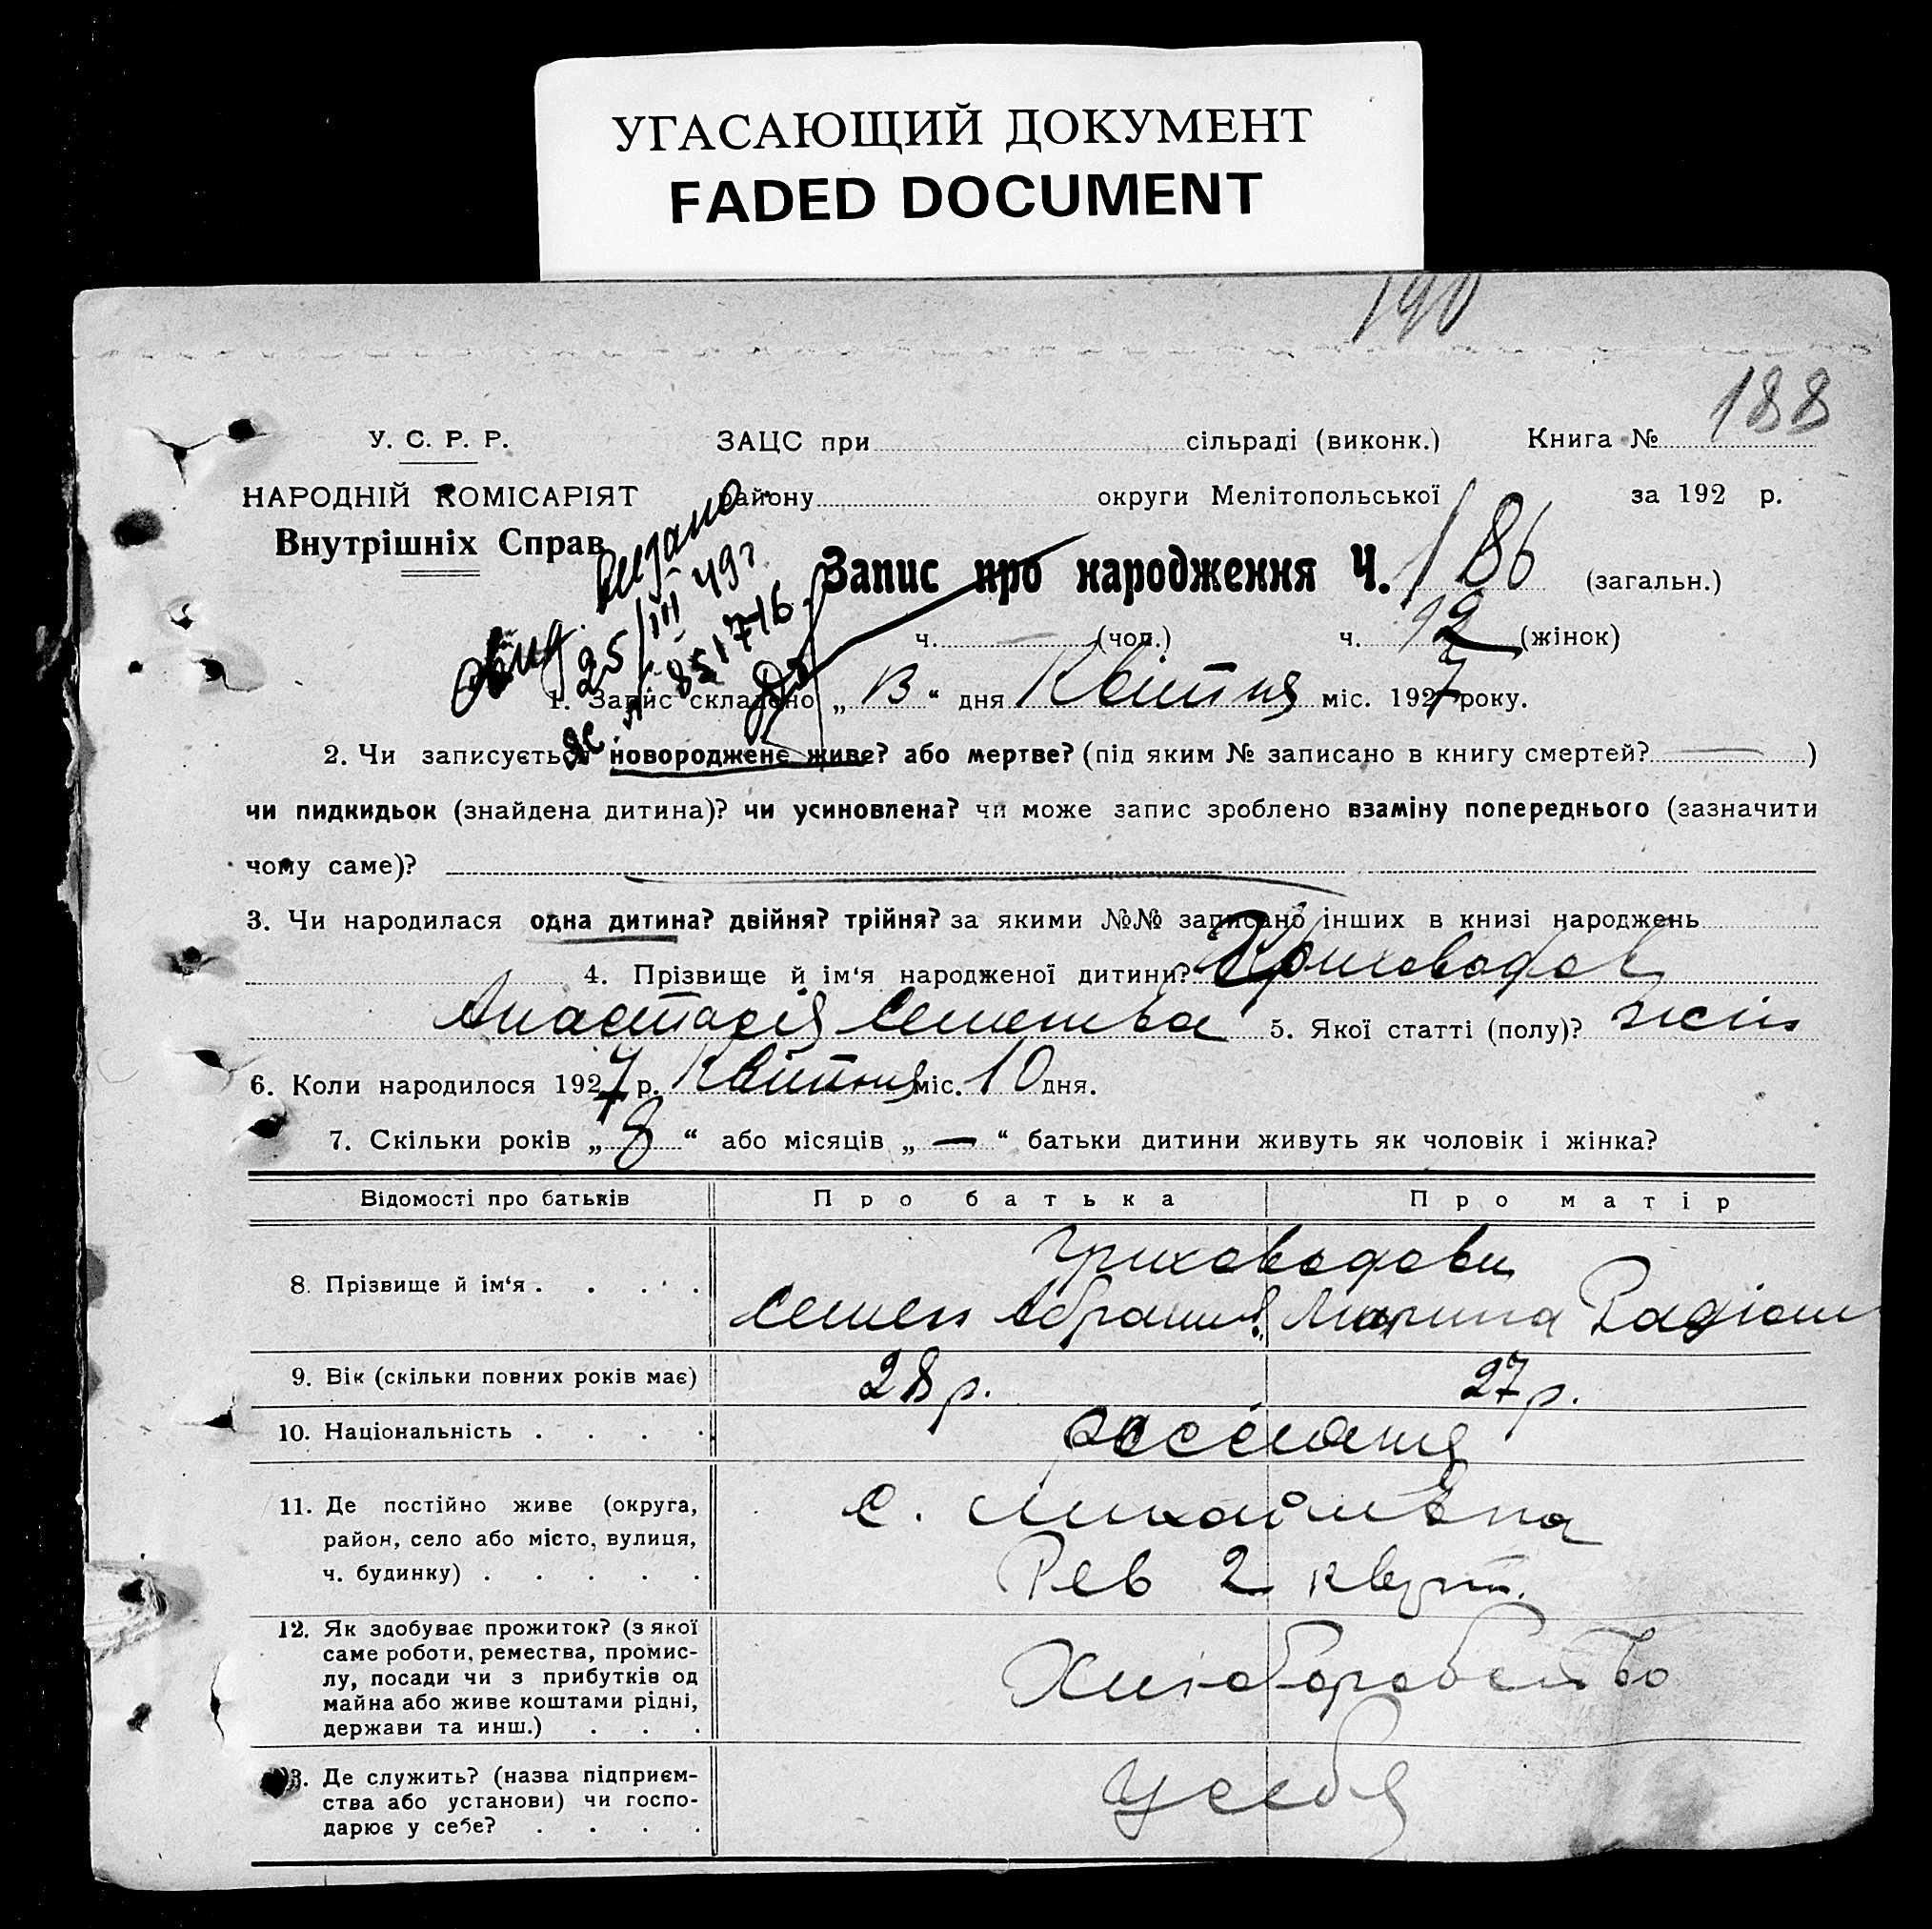 УГАСАЮЩИЙ ДОКУМЕНТ
FADED DOCUMENT
190
188
У. С. Р. Р. ЗАЦС при сільраді (виконк.) Книга №
НАРОДНІЙ КОМІСАРІЯТ району округи Мелітопольської за 192 р.
Внутрішніх Справ
Запис про народження Ч. 186 (загальн.)
видано
25/III 49 г.
851716
ч. — (чол.) ч. 92 (жінок)
1. Запис складено „13“ дня Квітня міс. 1927 року.
2. Чи записується новороджене живе? або мертве? (під яким № записано в книгу смертей? — )
чи пидкидьок (знайдена дитина)? чи усиновлена? чи може запис зроблено взаміну попереднього (зазначити
чому саме)?
3. Чи народилася одна дитина? двійня? трійня? за якими №№ записано інших в книзі народжень
4. Прізвище й ім‘я народженої дитини?
Анастасія Семенова 5. Якої статті (полу)? жін
6. Коли народилося 1927 р. Квітня міс. 10 дня.
7. Скільки років „8“ або місяців „—“ батьки дитини живуть як чоловік і жінка?
Відомості про батьків Про батька Про матір
Гриховодови
8. Прізвище й ім‘я . . . . Семен Абрамов. Марина Радіон
9. Вік (скільки повних років має) 28 р. 27 р.
10. Національність . . . .
11. Де постійно живе (округа, с. Михайлівка
район, село або місто, вулиця,
ч. будинку) . . . . . Рев 2 кварт.
12. Як здобуває прожиток? (з якої
саме роботи, ремества, промис-
лу, посади чи з прибутків од Хліборобство
майна або живе коштами рідні,
держави та инш.) . . .
13. Де служить? (назва підприєм-
ства або установи) чи госпо- У себя
дарює у себе? . . . .